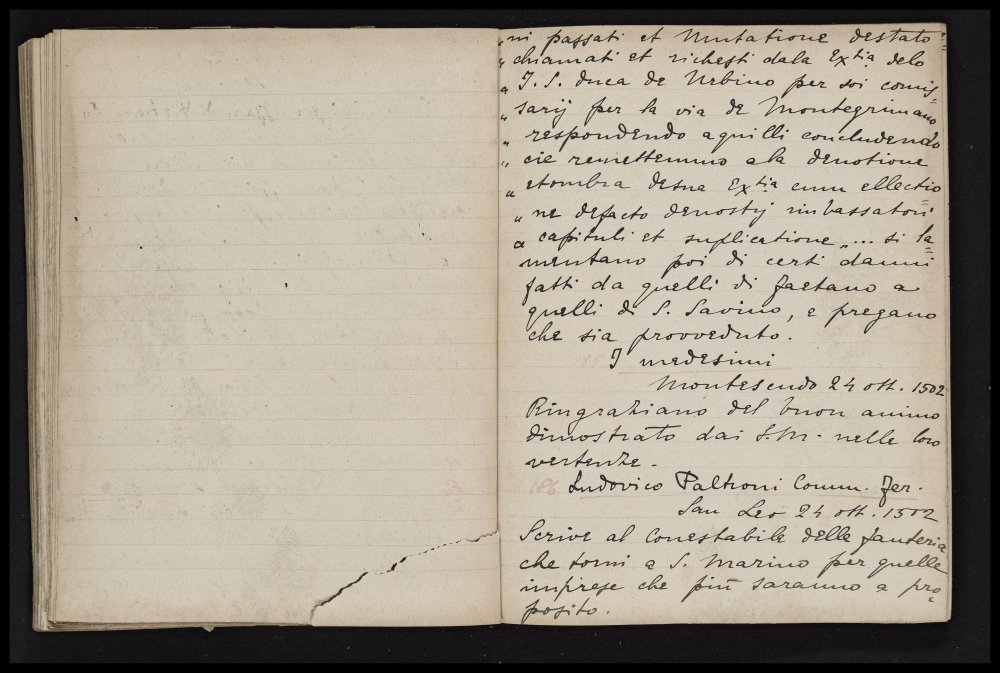 „ ni passati et mutatione destato
„ chiamati et richesti dala Extia delo
„ I. S. duca de Urbino per soi comis=
„ sarij per la via de Montegrimano
„ respondendo a quilli concludendo
„ cie remettemmo a la devotione
„ etombra desua Extia cum ellectio
„ ne defacto denostrj imbassatori
„ capituli et suplicatione „ ... si la=
mentano poi di certi danni
fatti da quelli di Gaetano a
quelli di S. Savino, e pregano
che sia provveduto.
I medesimi
Montesecudo 24 ott. 1502
Ringraziano del buon animo
dimostrato dai S.M. nelle loro
vertenze.
186 Ludovico Paltroni Comm. Fer.
San Leo 24 ott. 1502
Scrive al Conestabile delle fanteria
che torni a S. Marino per quelle
imprese che più saranno a pro=
posito.